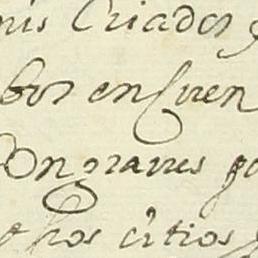 mis Criados
bos en Cuen
Con graues
hos citios